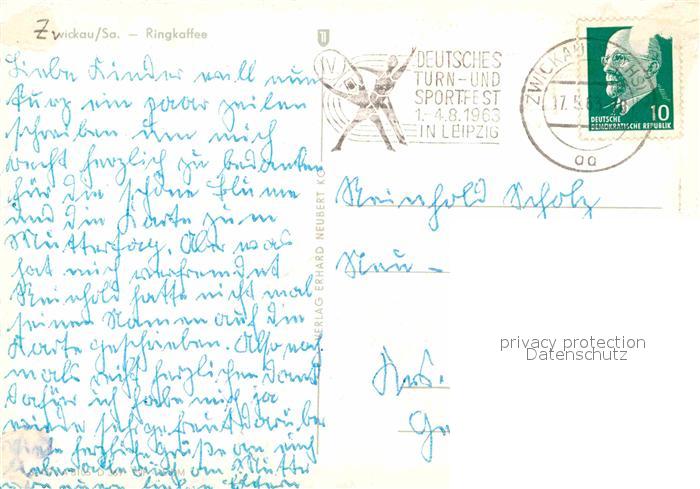 Zwickau/Sa. — Ringkaffee
Liebe Kinder will nun
kurz ein paar zeilen
schreiben um mich
recht herzlich zu bedanken
für die schöne Blume
und die Karte zum
Muttertag. Aber was
hat mich verfremdet
Reinhold hatte nicht mal
seinen Namen auf die
Karte geschrieben. Also noch
mals recht herzlichen Dank
dafür ich habe mich ja
wieder sehr gefreut darüber
Viele herzliche Grüße an euch
alle Mutter
Eltern
VERLAG ERHARD NEUBERT KG
IV
DEUTSCHES
TURN- UND
SPORTFEST
1.-4.8.1963
IN LEIPZIG
ZWICKAU
17.5.63
aa
10
DEUTSCHE
DEMOKRATISCHE REPUBLIK
Reinhold Scholz
Neu-
Krs.
Ge
privacy protection
Datenschutz